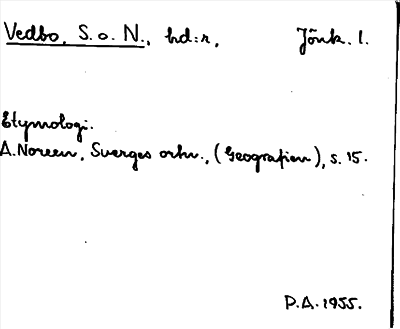 Vedbo, S. o. N., hd:r, Jönk. l.
Etymologi.
A. Noreen, Sverges ortn., (Geografien), s. 15.
P.A. 1955.